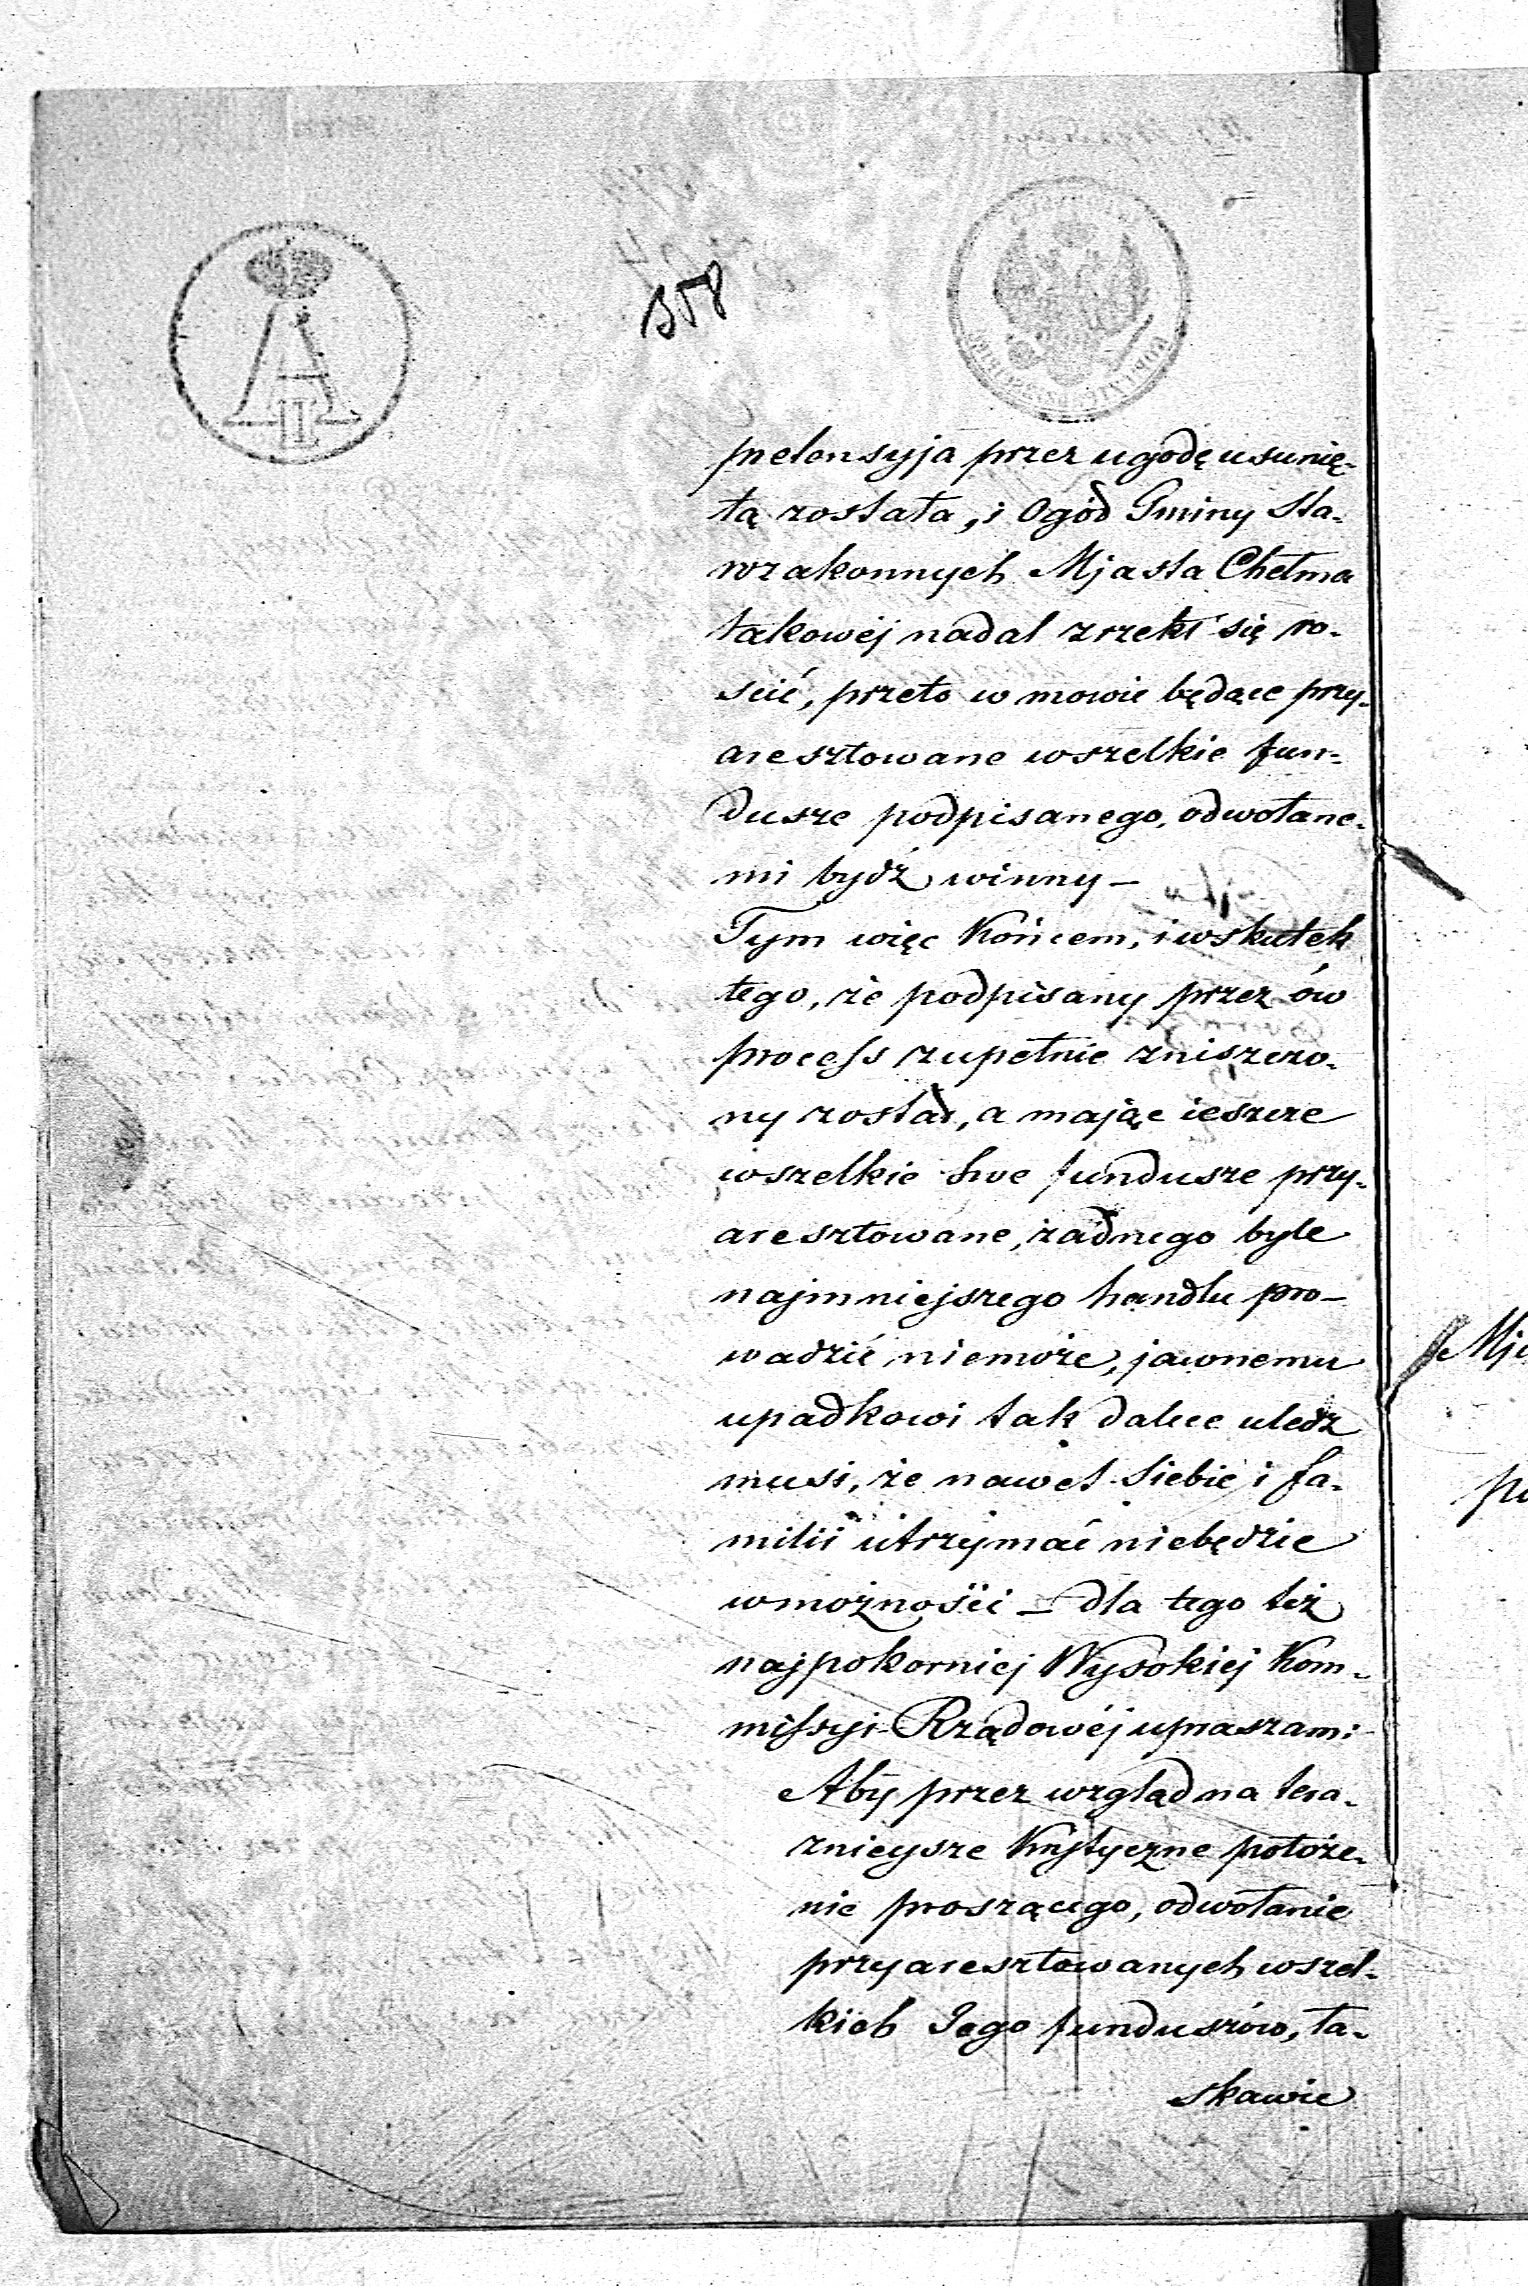 358
pretensyja przez ugodę usunię-
tą została, i Ogód Gminy Sta-
rozakonnych Mjasta Chełma
takowéj nadal zrzekł się ro-
ścić, przeto w mowie będące przy-
aresztowane wszelkie fun-
dusze podpisanego, odwołane-
mi bydź winny —
Tym więc Końcem, i wskutek
tego, że podpisany przez ów
process zupełnie zniszczo-
ny został, a mając ieszcze
wszelkie swe fundusze przy-
aresztowane, żadnego byle
najmniejszego handlu pro-
wadzić niemoże, jawnemu
upadkowi tak dalece uledz
musi, że nawet siebie i fa-
milii utrzymać niebędzie
wmożności — dla tego też
najpokorniej Wysokiej Kom-
missyi Rządowéj upraszam:
Aby przez wzgląd na tera-
znieysze Krytyczne położe-
nie proszącego, odwołanie
przyaresztowanych wszel-
kich Jego funduszów, ła-
skawie